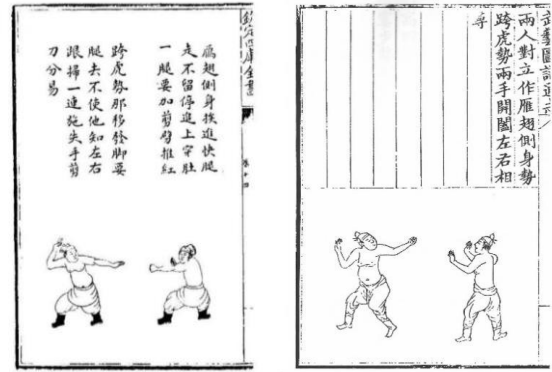 欽定四庫全書
卷十四
鴈翅側身挨進快腿
走不留停追上穿莊
一腿要加剪劈推紅
跨虎勢那移發脚要
腿去不使他知左右
跟掃一連施失手剪
刀分易
武藝圖譜通志
兩人對立作雁翅側身勢
跨虎勢兩手開闔左右相
尋